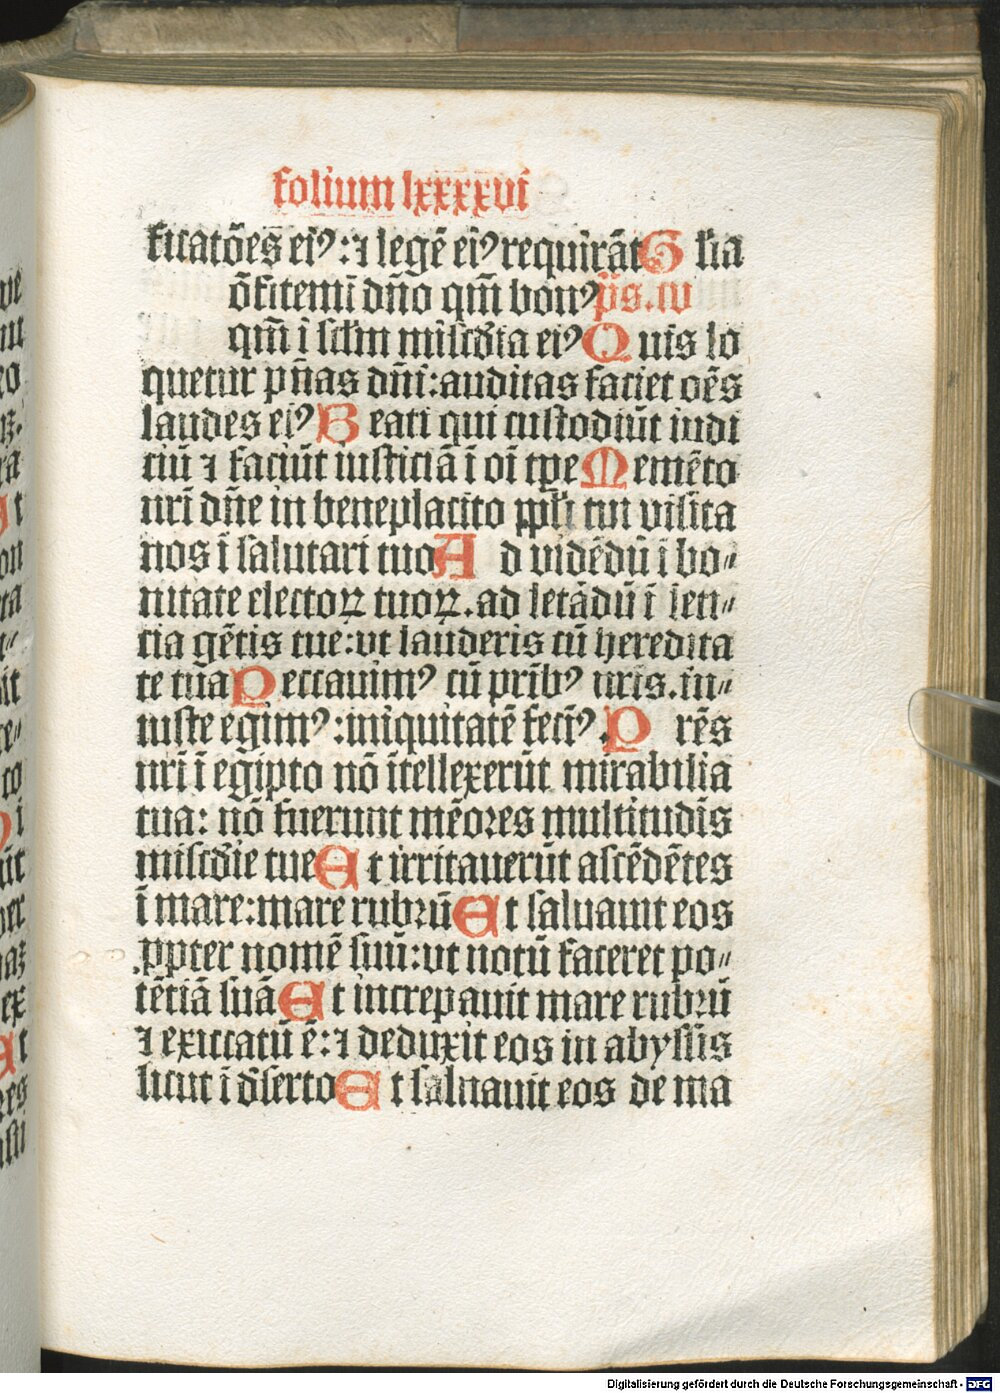 folium lxxxxvi
ficatões eiꝰ: ⁊ legē eiꝰ requirāt G lia
õfitemī dño qm̄ bonꝰ ps. cv
qm̄ ī sclm̄ misc̄dia eiꝰ Q uis lo
quetur pn̄as dñi: auditas faciet oēs
laudes eiꝰ B eati qui custodiūt iudi
ciū ⁊ faciūt iusticiā ī oī tpe M emēto
nrī dñe in beneplacito ppli tui visita
nos ī salutari tuo A d vidēdū ī bo⸗
nitate electoꝝ tuoꝝ. ad letādū ī leti⸗
cia gētis tue: vt lauderis cū heredita
te tua P eccauimꝰ cū prībꝰ nris. in⸗
iuste egimꝰ: iniquitatē fecīꝰ. P rēs
nrī ī egipto nō ītellexerūt mirabilia
tua: nō fuerunt mēoꝛes multitudīs
misc̄die tue E t irritauerūt ascēdētes
ī mare: mare rubꝛū E t saluauit eos
ꝓpter nomē suū: vt notū faceret po⸗
tētiā suā E t increpauit mare rubꝛū
⁊ exiccatū ē: ⁊ deduxit eos in abyssis
sicut ī d̄serto E t saluauit eos de ma
ue
nu
eo
ra
t
on
ta
it
ce⸗
to
i
ūt
ner
ex
t
res
isti
Digitalisierung gefördert durch die Deutsche Forschungsgemeinschaft - DFG